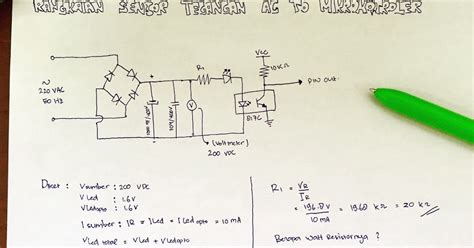 RANGKAIAN SENSOR TEGANGAN AC TO MIKROKONTROLER
~
220 VAC
50 Hz
+
-
R1
VCC
10KΩ
PIN OUT
V
817C
(Voltmeter)
200 VDC
Dicet : Vsumber : 200 VDC
V led : 1.6V
Vledopto : 1.6V
I sumber : IR = I Led = I Led opto = 10 mA
V led total = V led + V ledopto
R1 = VR
IR
= 196.8V = 19.68 kΩ = 20 kΩ
10 mA
Berapa Watt Resistornya ?